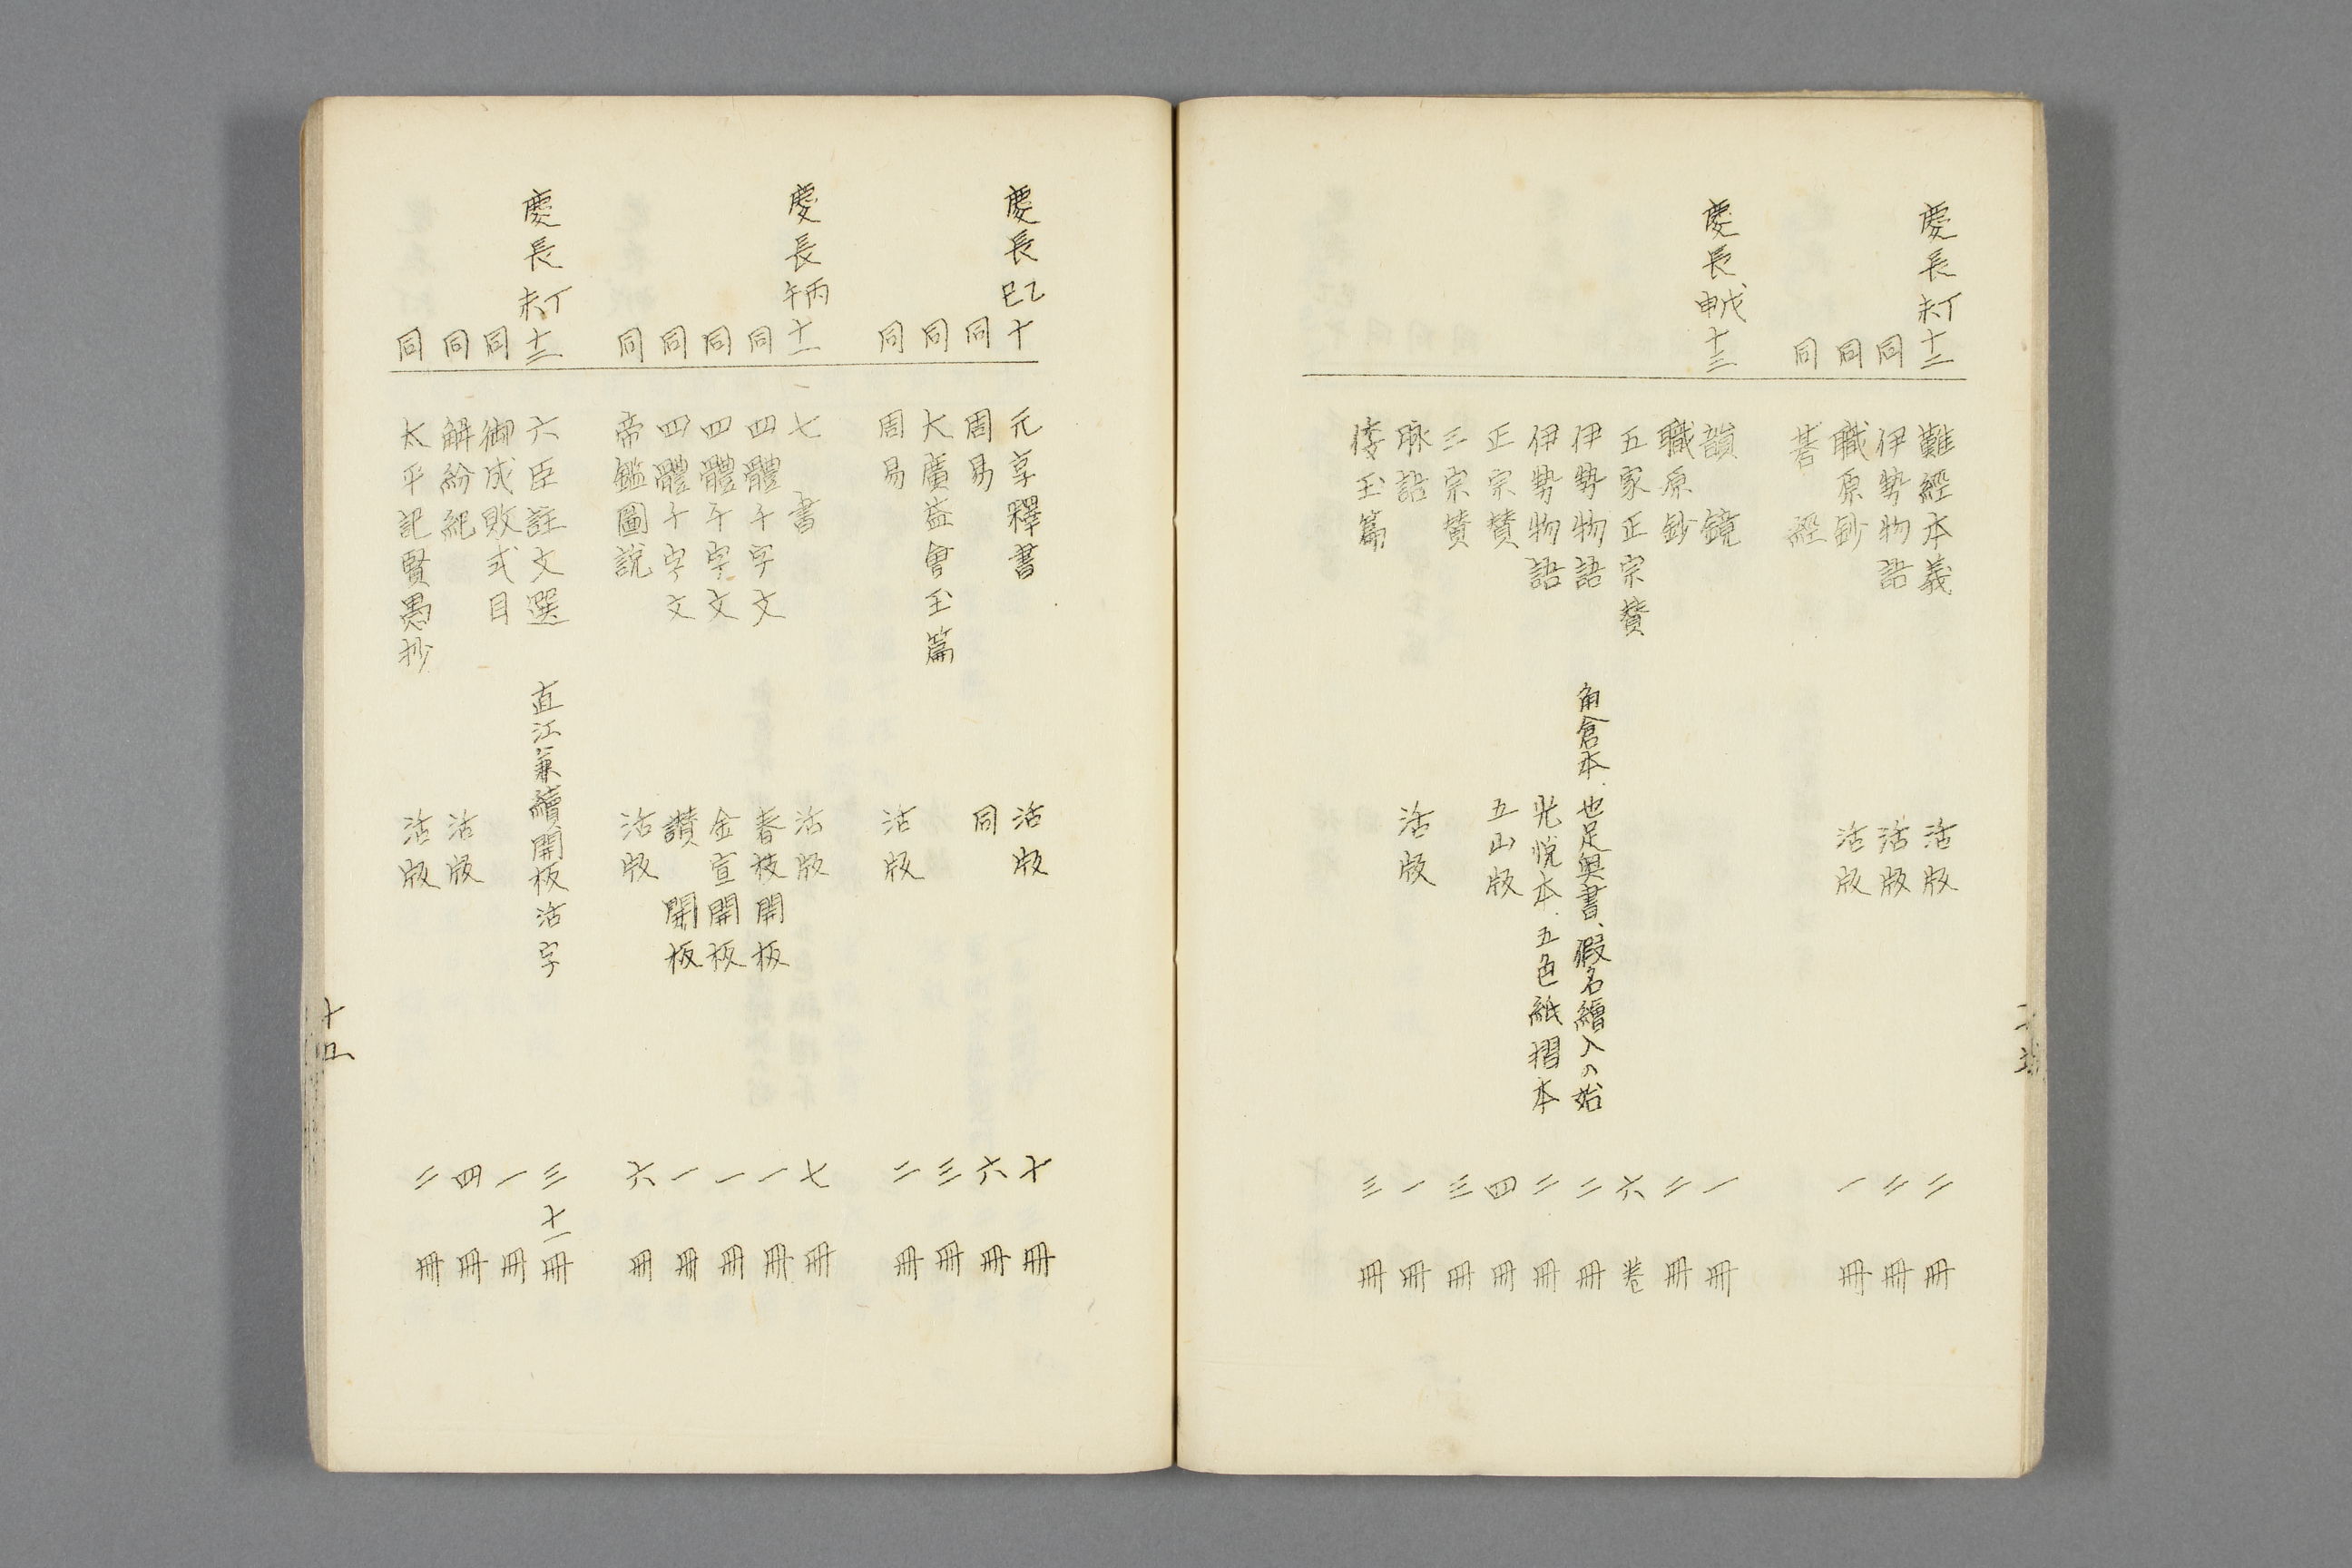 慶長丁未十二 難經本義 活版 二冊
同 伊勢物語 活版 二冊
同 職原鈔 活版 一冊
同 碁經
慶長戊申十三 韻鏡 一冊
職原鈔 二冊
五家正宗贊 六卷
伊勢物語 角倉本.也足奥書、假名繪入の始 二冊
伊勢物語 光悦本.五色紙摺本 二冊
正宗贊 五山版 四冊
三宗贊 三冊
脉語 活版 一冊
倭玉篇 三冊
慶長乙巳十 元享釋書 活版 十冊
同 周易 同 六冊
同 大廣益會玉篇 三冊
同 周易 活版 二冊
慶長丙午十一 七書 活版 七冊
同 四體千字文 春枝開板 一冊
同 四體千字文 金宣開板 一冊
同 四體千字文 讃 開板 一冊
同 帝鑑圖説 活版 六冊
慶長丁未十二 六臣註文選 直江兼續開板活字 三十一冊
同 御成敗式目 一冊
同 解紛紀 活版 四冊
同 太平記賢愚抄 活版 二冊
十四